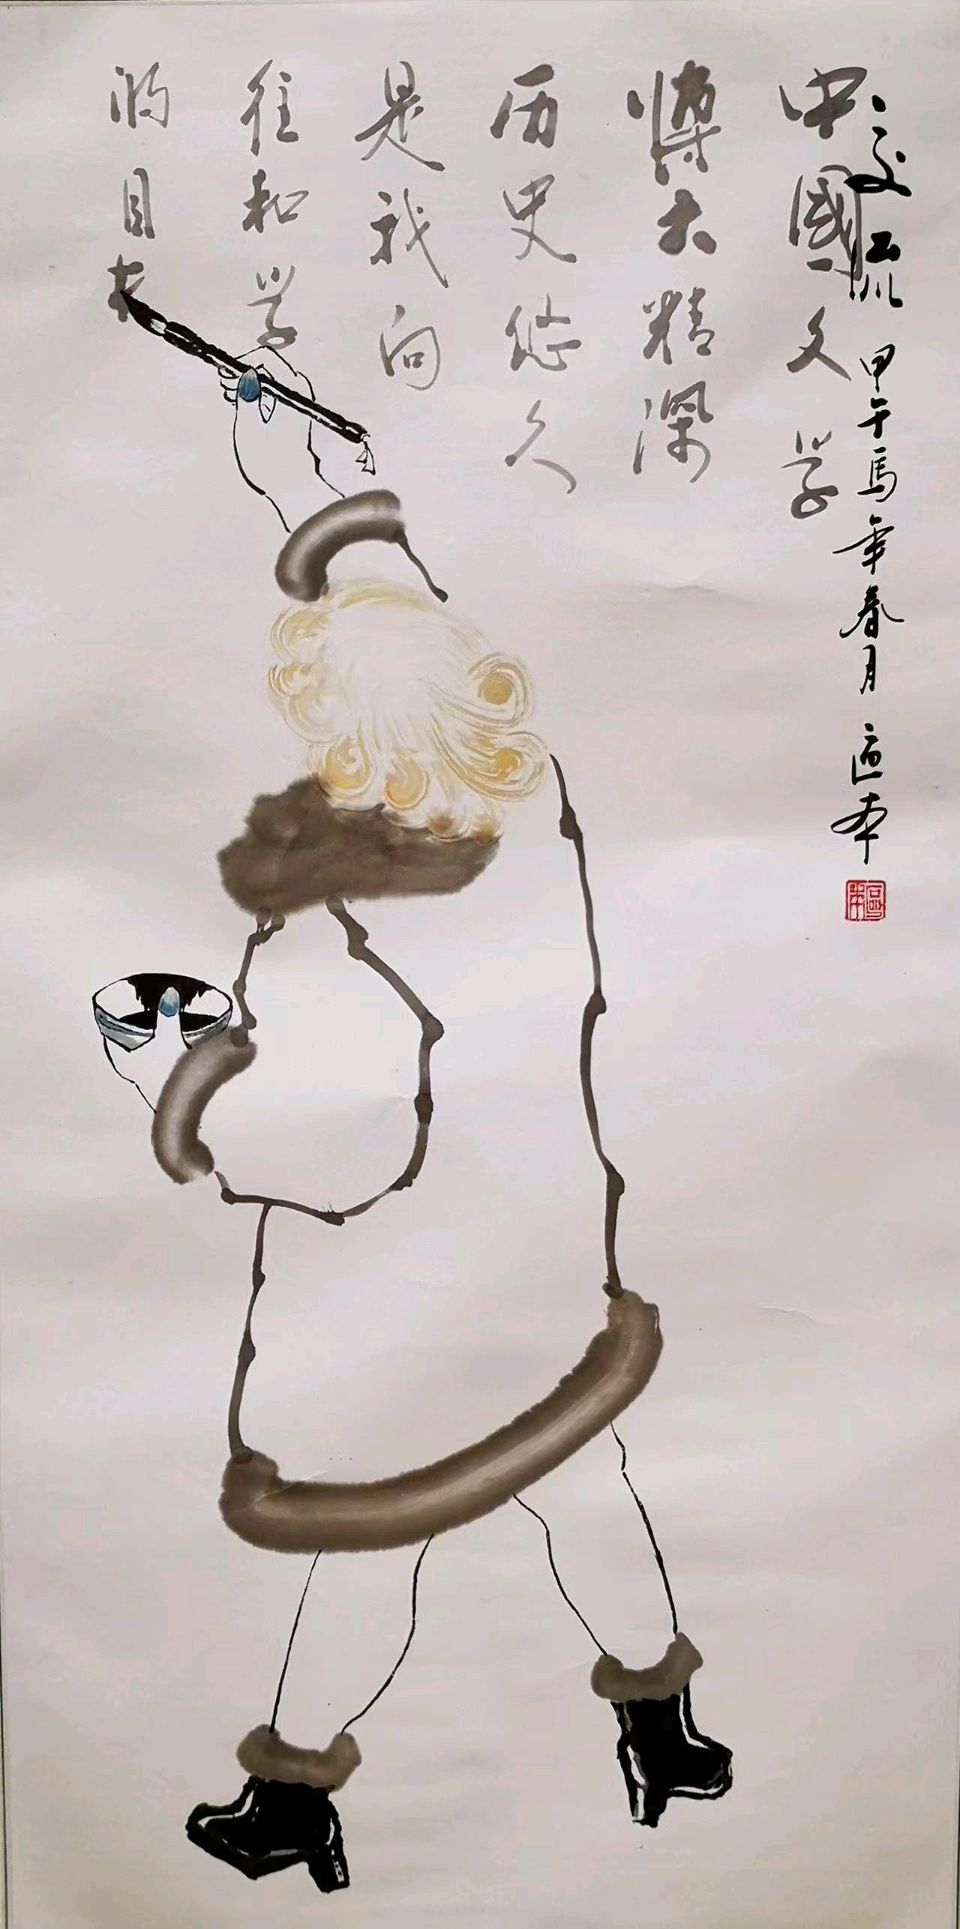 交流 甲午馬年春月
中國文学
博大精深
历史悠久
是我向
往和学
的目